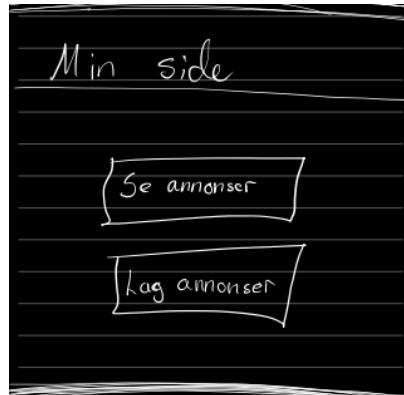 Min side
Se annonser
Lag annonser